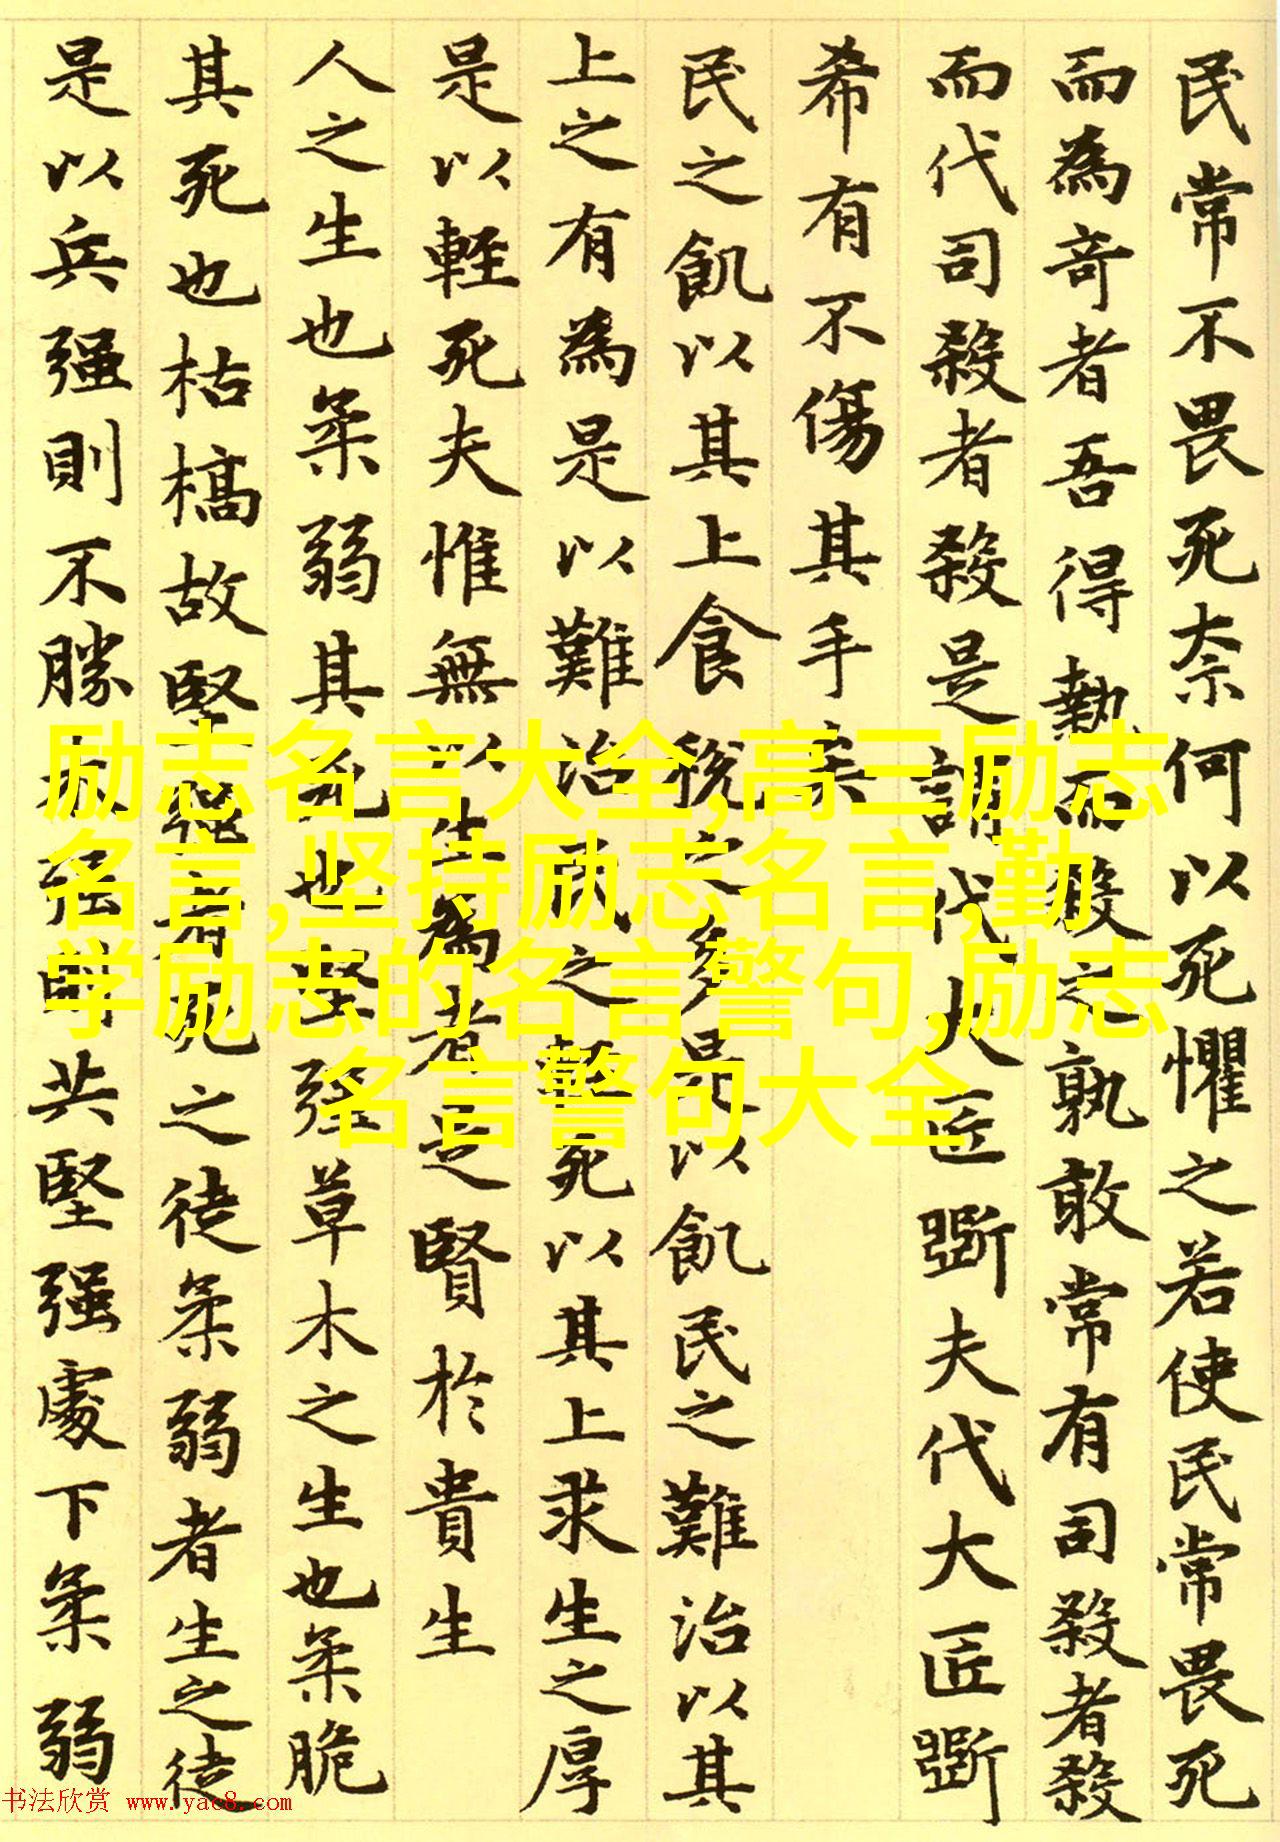 民常不畏死柰何以死懼之若使民常畏死
而為奇者吾得執而殺之孰敢常有司殺者殺
而代司殺者殺是謂代大匠斲夫代大匠斲
希有不傷其手矣
民之飢以其上食稅之多是以飢民之難治以其
上之有為是以難治民之輕死以其上求生之厚
是以輕死夫惟無以生為者是賢於貴生
人之生也柔弱其死也堅强草木之生也柔脆
其死也枯槁故堅强者死之徒柔弱者生之徒
是以兵强則不勝木强則共堅强處下柔弱
励志名言大全,高三励志
名言,坚持励志名言,勤
学励志的名言警句,励志
名言警句大全
书法欣赏 www.yac8.com